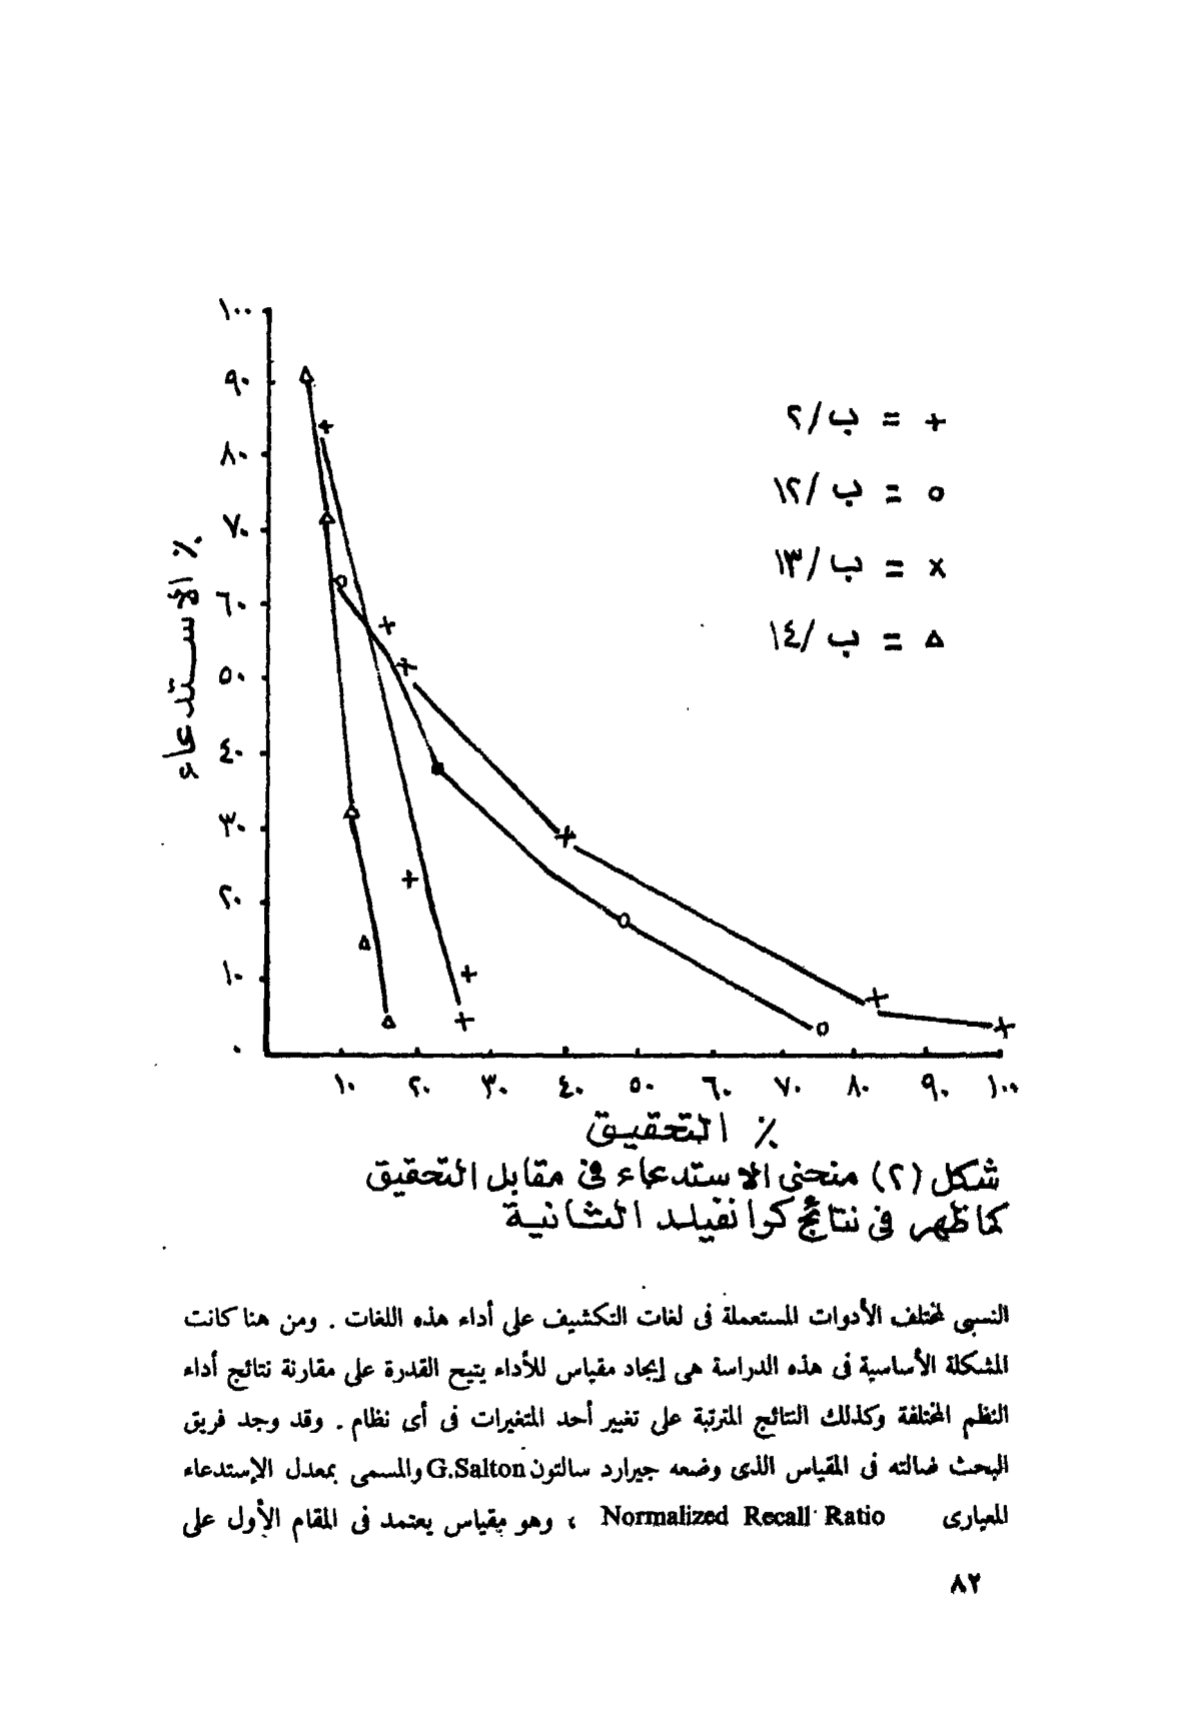 ١٠٠
٩٠
٨٠
٧٠
٦٠
٥٠
٤٠
٣٠
٢٠
١٠
٠
% الأستدعاء
+ = ب/٢
o = ب/١٢
x = ب/١٣
△ = ب/١٤
١٠ ٢٠ ٣٠ ٤٠ ٥٠ ٦٠ ٧٠ ٨٠ ٩٠ ١٠٠
% التحقيق
شكل (٢) منحنى الاستدعاء فى مقابل التحقيق
كما ظهر فى نتائج كرانفيلد الثانية
النسبى لمختلف الأدوات المستعملة فى لغات التكشيف على أداء هذه اللغات . ومن هنا كانت
المشكلة الأساسية فى هذه الدراسة هى إيجاد مقياس للأداء يتيح القدرة على مقارنة نتائج أداء
النظم المختلفة وكذلك النتائج المترتبة على تغيير أحد المتغيرات فى أى نظام . وقد وجد فريق
البحث ضالته فى المقياس الذى وضعه جيرارد سالتون G.Salton والمسمى بمعدل الإستدعاء
المعيارى Normalized Recall Ratio ، وهو مقياس يعتمد فى المقام الأول على
٨٢